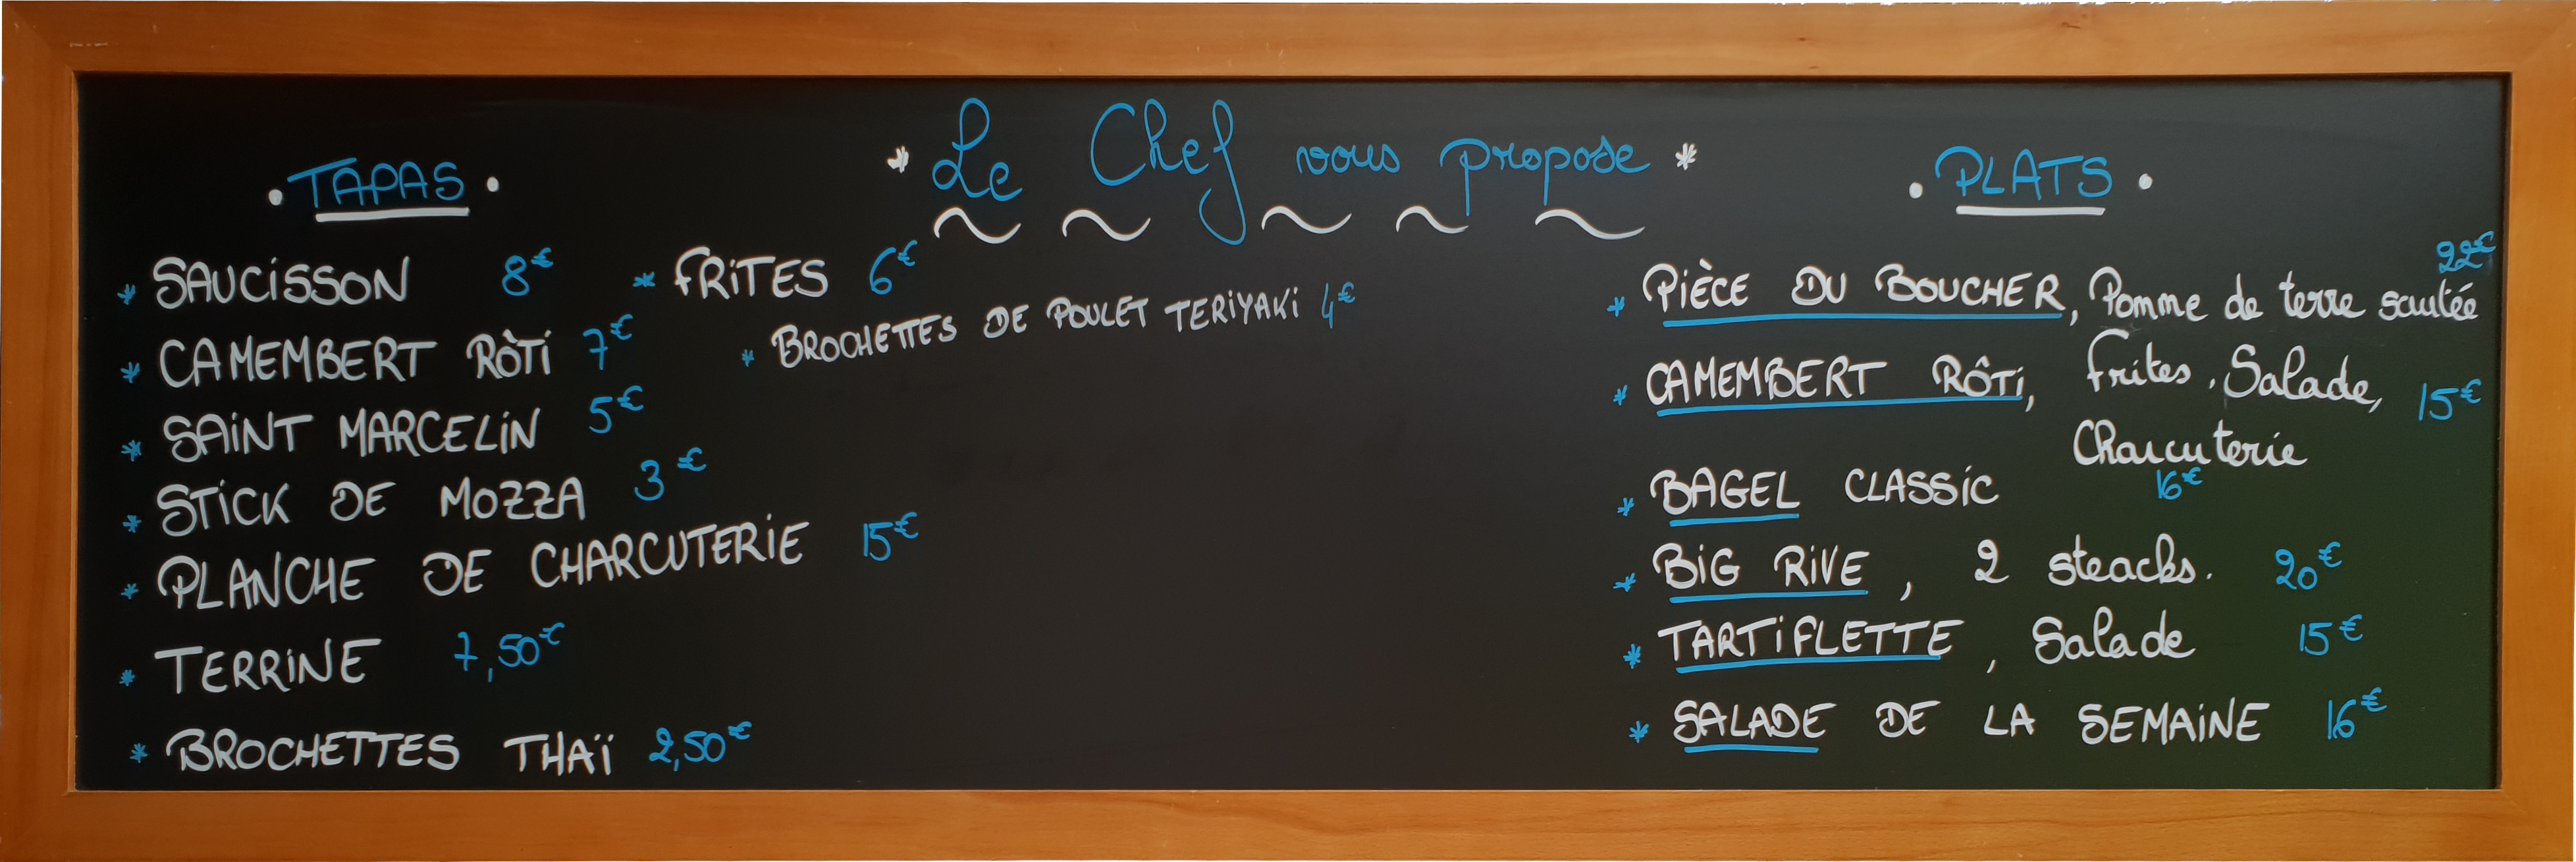 * Le Chef vous propose *
~ ~ ~ ~ ~
. TAPAS .
* SAUCISSON 8€
* CAMEMBERT RÔTI 7€
* SAINT MARCELIN 5€
* STICK DE MOZZA 3€
* PLANCHE DE CHARCUTERIE 15€
* TERRINE 7,50€
* BROCHETTES THAÏ 2,50€
* FRITES 6€
* BROCHETTES DE POULET TERIYAKI 4€
. PLATS .
* PIÈCE DU BOUCHER, Pomme de terre sautée 22€
* CAMEMBERT RÔTI, Frites, Salade, 15€
Charcuterie
* BAGEL CLASSIC 16€
* BIG RIVE, 2 steacks. 20€
* TARTIFLETTE, Salade 15€
* SALADE DE LA SEMAINE 16€